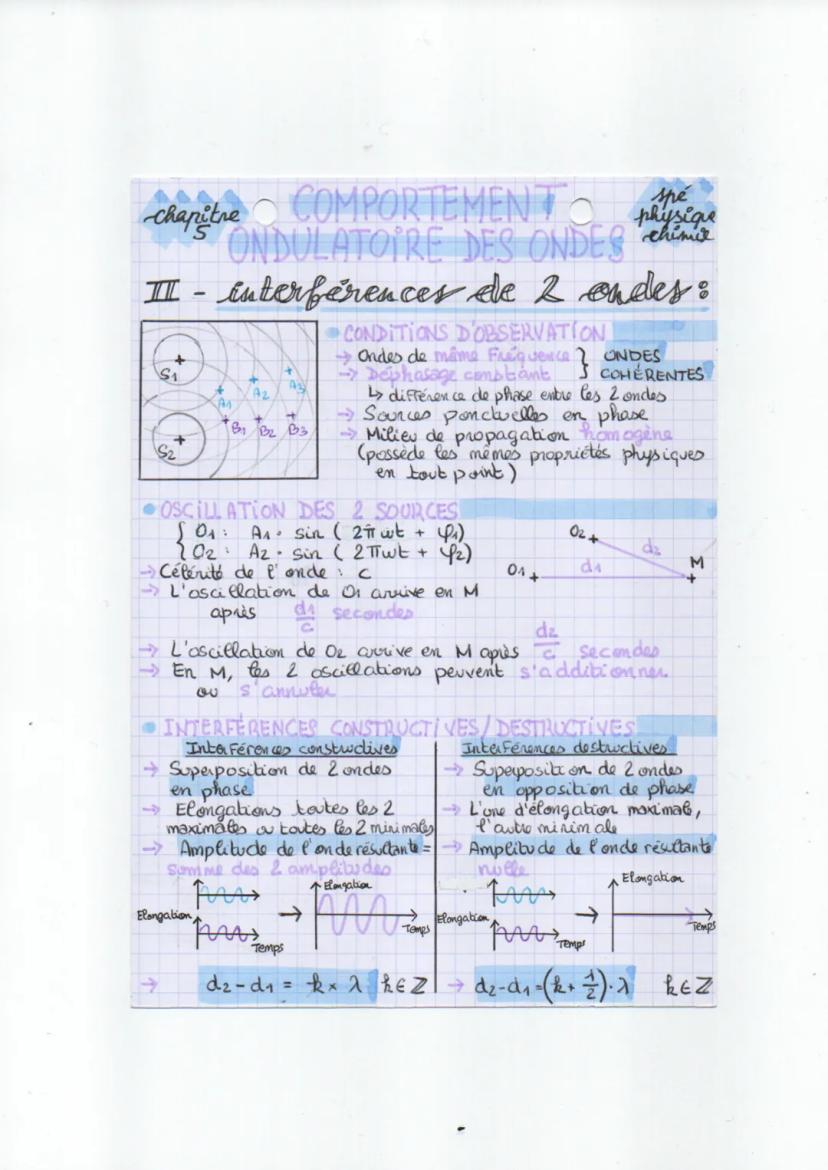 chapitre 5
COMPORTEMENT
ONDULATOIRE DES ONDES
spé
physique
chimie
II - interférences de 2 ondes :
S1
S2
A1 A2 A3
B1 B2 B3
• CONDITIONS D'OBSERVATION
→ Ondes de même Fréquence } ONDES
→ Déphasage constant } COHÉRENTES
↳ différence de phase entre les 2 ondes
→ Sources ponctuelles en phase
→ Milieu de propagation homogène
(possède les mêmes propriétés physiques
en tout point)
• OSCILLATION DES 2 SOURCES
{ O1 : A1 • sin ( 2π ωt + φ1)
{ O2 : A2 • sin ( 2πωt + φ2)
O2 d2
O1 d1 M
→ Célérité de l'onde : c
→ L'oscillation de O1 arrive en M
après d1/c secondes
→ L'oscillation de O2 arrive en M après d2/c secondes
→ En M, les 2 oscillations peuvent s'additionner
ou s'annuler
• INTERFÉRENCES CONSTRUCTIVES/DESTRUCTIVES
Interférences constructives
→ Superposition de 2 ondes
en phase
→ Elongations toutes les 2
maximales ou toutes les 2 minimales
→ Amplitude de l'onde résultante =
somme des 2 amplitudes
Elongation
Temps
→
Elongation
Temps
→ d2-d1 = k × λ k ∈ ℤ
Interférences destructives
→ Superposition de 2 ondes
en opposition de phase
→ L'une d'élongation maximale,
l'autre minimale
→ Amplitude de l'onde résultante
nulle
Elongation
Temps
→
Elongation
Temps
→ d2-d1=(k+ 1/2)•λ k ∈ ℤ